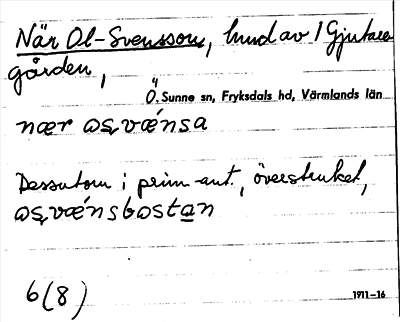 När Ol-Svensson, hmd av 1 Gjutare
gården,
Ö. Sunne sn, Fryksdals hd, Värmlands län
nær os̩vǽnsa
Dessutom i prim-ant., överstruket,
os̩vǽnsbostan
6(8)
1911–16